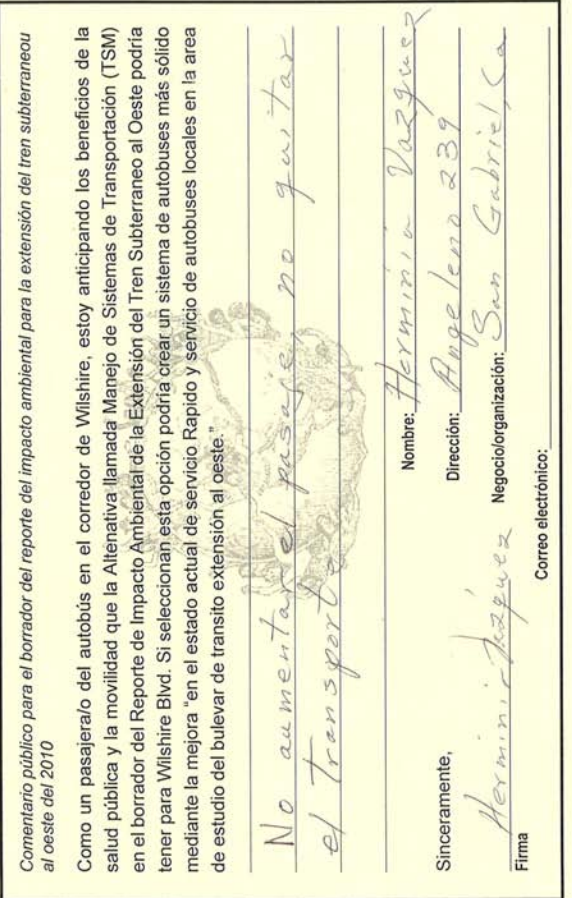 Comentario público para el borrador del reporte del impacto ambiental para la extensión del tren subterraneou
al oeste del 2010
Como un pasajera/o del autobús en el corredor de Wilshire, estoy anticipando los beneficios de la
salud pública y la movilidad que la Alternativa llamada Manejo de Sistemas de Transportación (TSM)
en el borrador del Reporte de Impacto Ambiental de la Extensión del Tren Subterraneo al Oeste podría
tener para Wilshire Blvd. Si seleccionan esta opción podría crear un sistema de autobuses más sólido
mediante la mejora "en el estado actual de servicio Rapido y servicio de autobuses locales en la area
de estudio del bulevar de transito extensión al oeste."
No aumentar el pasaje, no quitar
el transporte
Nombre: Herminia Vazquez
Sinceramente,
Dirección: Angeleno 239
Hermini Vazquez Negocio/organización: San Gabriel, Ca
Firma
Correo electrónico: